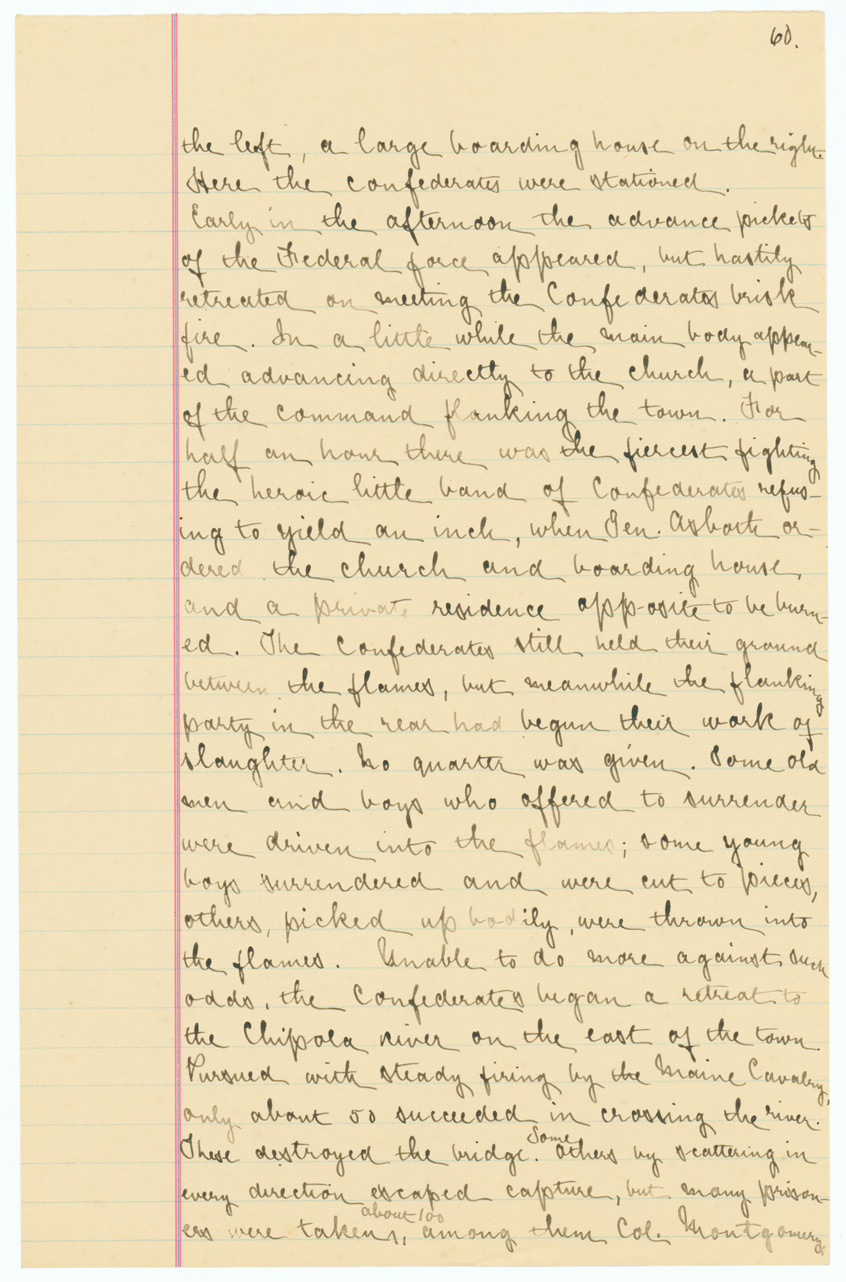 60.
the left, a large boarding house on the right.
Here the confederates were stationed.
Early in the afternoon the advance pickets
of the Federal force appeared, but hastily
retreated on meeting the Confederates brisk
fire. In a little while the main body appear-
ed advancing directly to the church, a part
of the command flanking the town. For
half an hour there was the fiercest fighting
the heroic little band of Confederates refus-
ing to yield an inch, when Gen. Asboth or-
dered the church and boarding house,
and a private residence opposite to be burn-
ed. The Confederates still held their ground
between the flames, but meanwhile the flanking
party in the rear had begun their work of
slaughter. No quarter was given. Some old
men and boys who offered to surrender
were driven into the flames; some young
boys surrendered and were cut to pieces,
others, picked up bodily, were thrown into
the flames. Unable to do more against such
odds, the Confederates began a retreat to
the Chipola river on the east of the town.
Pursued with steady firing by the Maine Cavalry,
only about 50 succeeded in crossing the river.
These destroyed the bridge. Some others by scattering in
every direction escaped capture, but many prison-
ers were taken, about 100, among them Col. Montgomery.